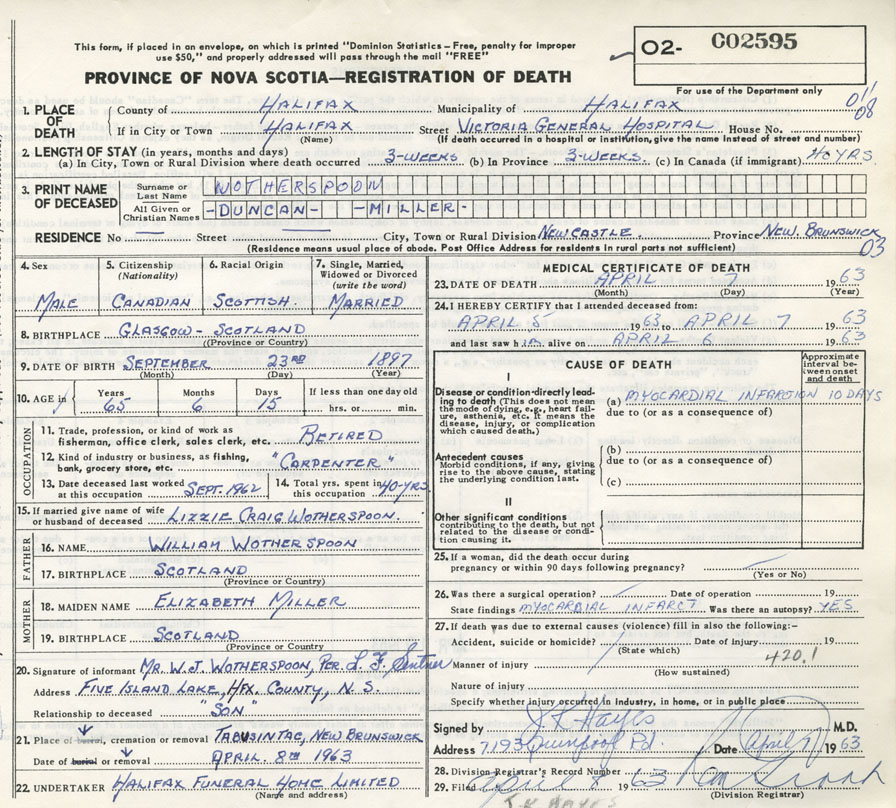 This form, if placed in an envelope, on which is printed "Dominion Statistics – Free, penalty for improper
use $50," and properly addressed will pass through the mail "FREE"
PROVINCE OF NOVA SCOTIA—REGISTRATION OF DEATH
O2- C02595
For use of the Department only
011
08
1. PLACE OF DEATH
County of HALIFAX Municipality of HALIFAX
If in City or Town HALIFAX Street VICTORIA GENERAL HOSPITAL House No.
(Name) (If death occurred in a hospital or institution, give the name instead of street and number)
2. LENGTH OF STAY (in years, months and days)
(a) In City, Town or Rural Division where death occurred 3-WEEKS (b) In Province 3-WEEKS. (c) In Canada (if immigrant) 40 YRS
3. PRINT NAME OF DECEASED
Surname or Last Name WOTHERSPOON
All Given or Christian Names -DUNCAN- -MILLER-
RESIDENCE No — Street — City, Town or Rural Division NEWCASTLE. Province NEW. BRUNSWICK
(Residence means usual place of abode. Post Office Address for residents in rural parts not sufficient)
03
4. Sex MALE
5. Citizenship (Nationality) CANADIAN
6. Racial Origin SCOTTISH.
7. Single, Married, Widowed or Divorced (write the word) MARRIED
8. BIRTHPLACE GLASGOW - SCOTLAND
(Province or Country)
9. DATE OF BIRTH SEPTEMBER 23RD 1897
(Month) (Day) (Year)
10. AGE in Years 65 Months 6 Days 15 If less than one day old hrs. or min.
OCCUPATION
11. Trade, profession, or kind of work as fisherman, office clerk, sales clerk, etc. RETIRED
12. Kind of industry or business, as fishing, bank, grocery store, etc. "CARPENTER"
13. Date deceased last worked at this occupation SEPT. 1962
14. Total yrs. spent in this occupation 40-YRS.
15. If married give name of wife or husband of deceased LIZZIE CRAIG WOTHERSPOON.
FATHER
16. NAME WILLIAM WOTHERSPOON
17. BIRTHPLACE SCOTLAND
(Province or Country)
MOTHER
18. MAIDEN NAME ELIZABETH MILLER
19. BIRTHPLACE SCOTLAND
(Province or Country)
20. Signature of informant MR. W. J. WOTHERSPOON, PER. L. F.
Address FIVE ISLAND LAKE, HFX. COUNTY, N. S.
Relationship to deceased "SON"
21. Place of burial, cremation or removal TABUSINTAC, NEW BRUNSWICK
Date of burial or removal APRIL. 8TH 1963
22. UNDERTAKER HALIFAX FUNERAL HOME LIMITED
(Name and address)
MEDICAL CERTIFICATE OF DEATH
23. DATE OF DEATH APRIL 7 19 63
(Month) (Day) (Year)
24. I HEREBY CERTIFY that I attended deceased from:
APRIL 5 19 63 to APRIL 7 19 63
and last saw him alive on APRIL 6 19 63
CAUSE OF DEATH
Approximate interval between onset and death
I
Disease or condition directly leading to death (This does not mean the mode of dying, e.g., heart failure, asthenia, etc. It means the disease, injury, or complication which caused death.)
(a) MYOCARDIAL INFARCTION 10 DAYS
due to (or as a consequence of)
Antecedent causes
Morbid conditions, if any, giving rise to the above cause, stating the underlying condition last.
(b)
due to (or as a consequence of)
(c)
II
Other significant conditions
contributing to the death, but not related to the disease or condition causing it.
25. If a woman, did the death occur during
pregnancy or within 90 days following pregnancy?
(Yes or No)
26. Was there a surgical operation? Date of operation 19
State findings MYOCARDIAL INFARCT. Was there an autopsy? YES
27. If death was due to external causes (violence) fill in also the following:–
Accident, suicide or homicide? Date of injury 19
(State which)
420.1
Manner of injury
(How sustained)
Nature of injury
Specify whether injury occurred in industry, in home, or in public place
Signed by J. K. Hayes M.D.
Address 7193 Quinpool Rd. Date April 7 19 63
28. Division Registrar's Record Number
29. Filed April 8 19 63
(Division Registrar)
J. K. HAYES